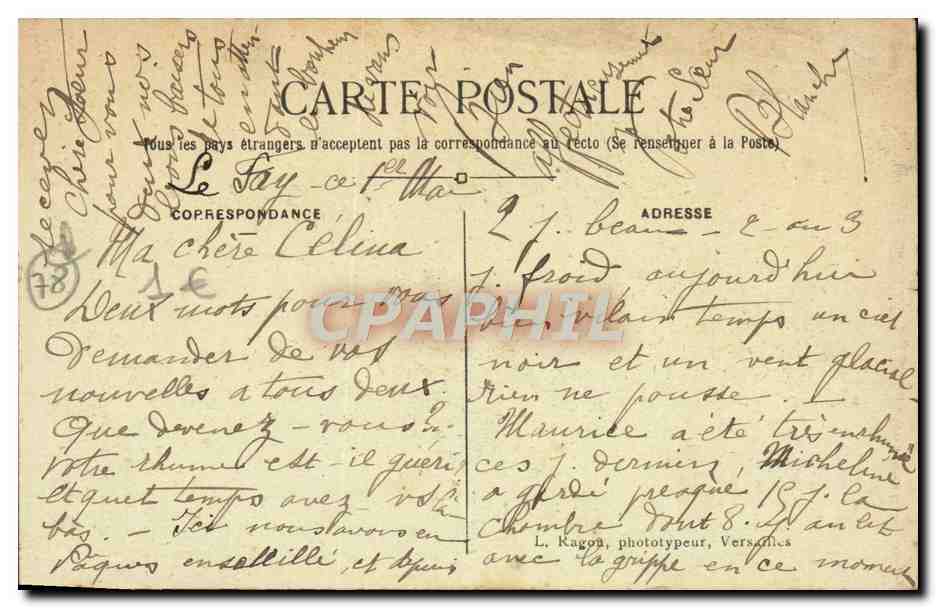 CARTE POSTALE
Tous les pays étrangers n'acceptent pas la correspondance au recto (Se renseigner à la Poste)
Le Fay - ce 1er Mai
CORRESPONDANCE
Ma chère Célina
Deux mots pour vous
demander de vos
nouvelles a tous deux.
Que devenez-vous?
votre rhume est-il guéri,
et quel temps avez vs là
bas. - Ici nous avons eu
Pâques ensoleillé, et depuis
ADRESSE
2 j. beau - 2 ou 3
j. froid, aujourd'hui
vilain temps un ciel
noir et un vent glacial
rien ne pousse. -
Maurice a été très enrhumé
ces j. derniers, Micheline
a gardé presque 15 j. la
chambre dont 8 j. au lit
avec la grippe en ce moment
L. Ragon, phototypeur, Versailles
recevez
chère Sœur
pour vous
deux nos
bons baisers
de tous
en atten-
dant
le bonheur
Affectueusement
votre Sœur
Blanche
78
1 €
CPAPHIL